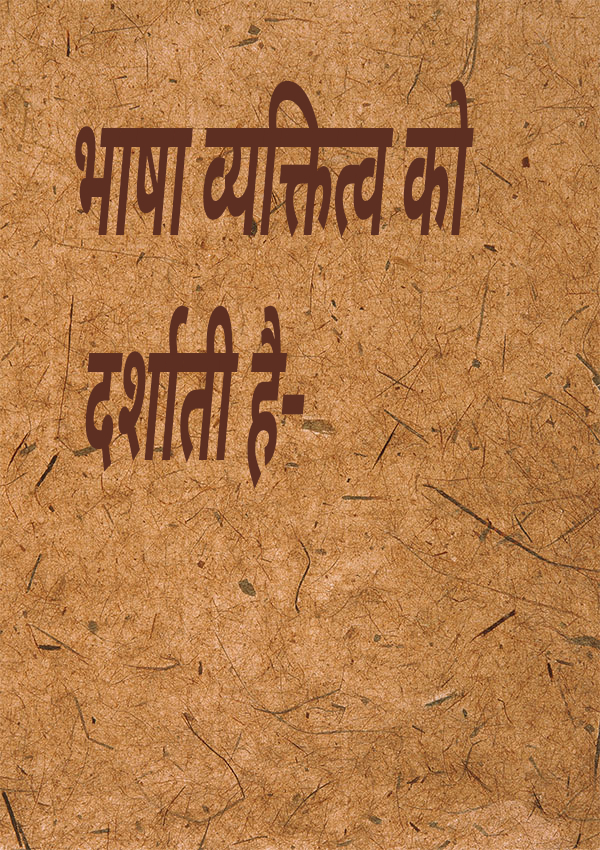 भाषा व्यक्तित्व को
दर्शाती है-